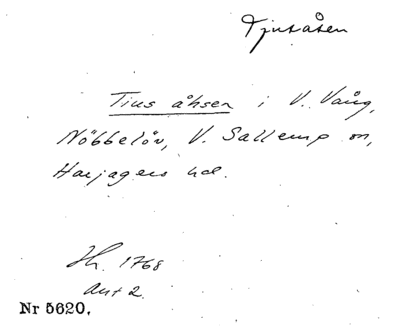 Tjusåsen
Tius åhsen i V. Vång,
Nöbbelöv, V. Sallerup sn,
Harjagers hd.
Hh. 1768
Akt 2.
Nr 5620.